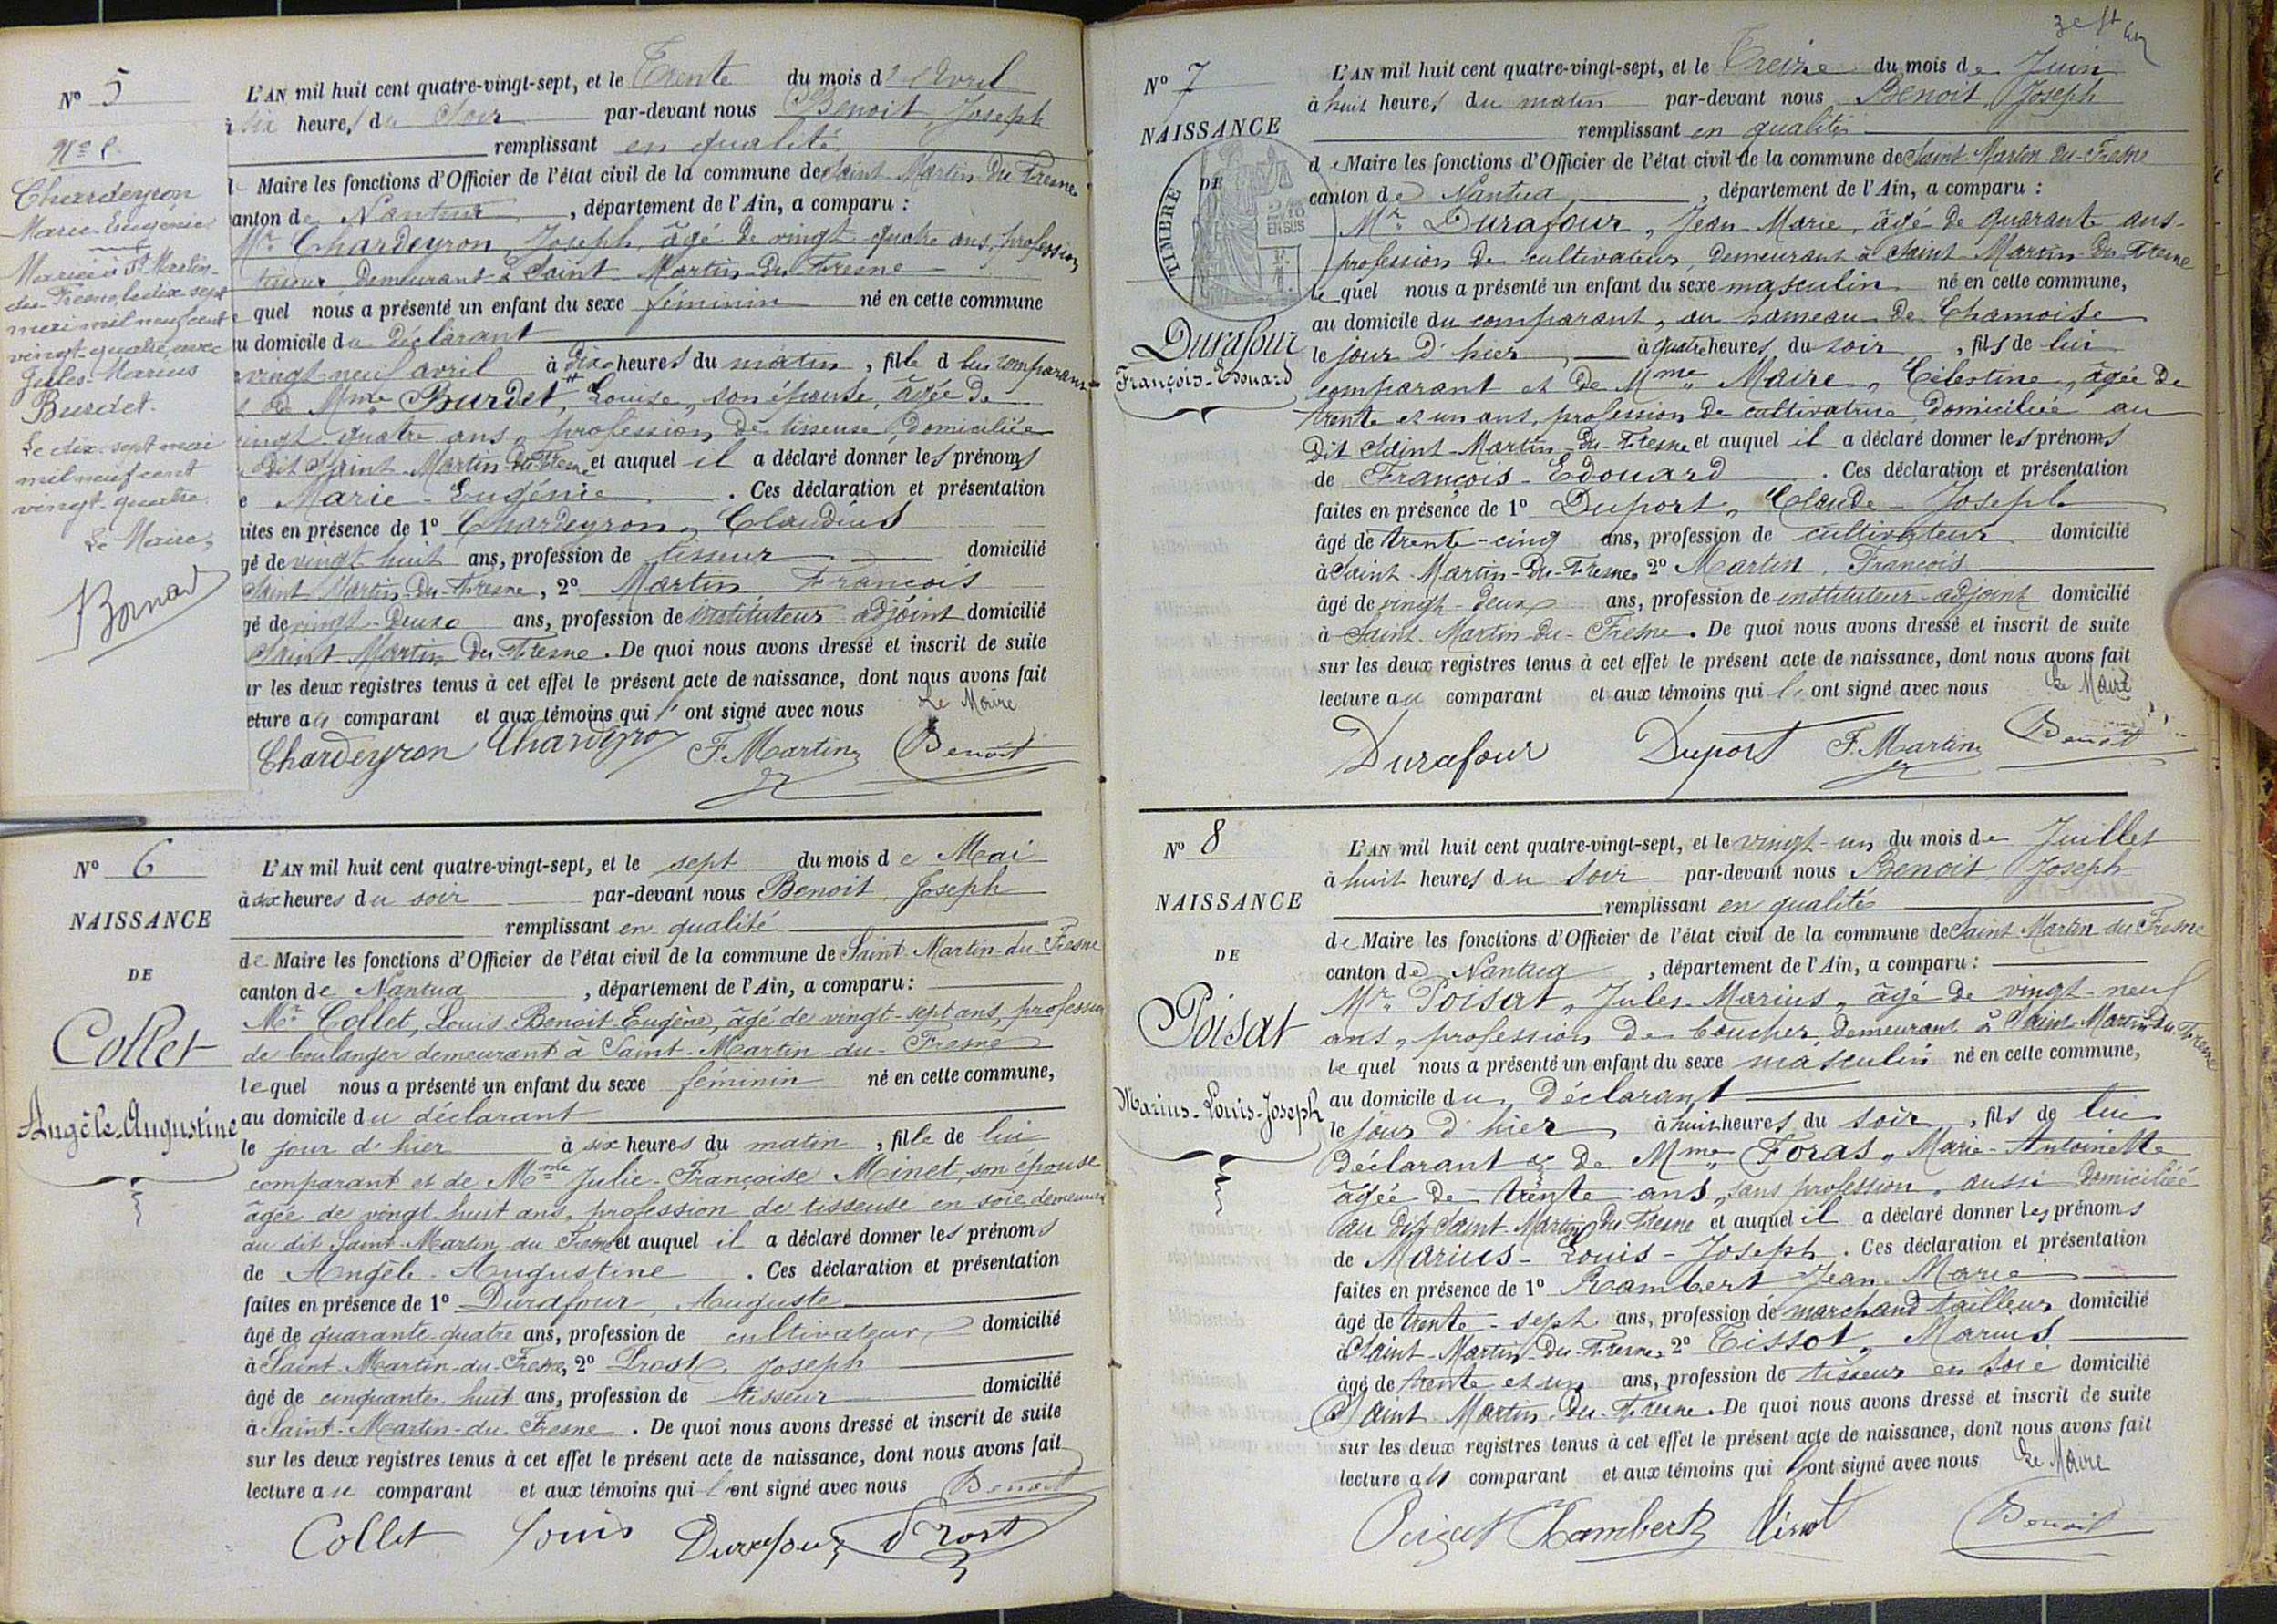 N° 5
N° 5
Chardeyron
Marie-Eugénie
Mariée à St Martin-
du-Fresne, le dix sept
mai mil neuf cent
vingt-quatre, avec
Jules-Marius
Burdet.
Le dix-sept mai
mil neuf cent
vingt-quatre.
Le Maire,
L'AN mil huit cent quatre-vingt-sept, et le Trente du mois d'Avril
à six heures du Soir par-devant nous Benoit, Joseph
remplissant en qualité
Maire les fonctions d'Officier de l'état civil de la commune de Saint Martin-du-Fresne
canton de Nantua, département de l'Ain, a comparu :
Mr Chardeyron, Joseph, âgé de vingt quatre ans, profession
tisseur, demeurant à Saint Martin-du-Fresne
quel nous a présenté un enfant du sexe féminin né en cette commune
au domicile du déclarant
vingt neuf avril à dix heures du matin, fille d lui comparant
de Mme Burdet, Louise, son épouse, âgée de
vingt quatre ans, profession de tisseuse, domiciliée
dit Saint-Martin-du-Fresne et auquel il a déclaré donner les prénoms
Marie-Eugénie. Ces déclaration et présentation
faites en présence de 1° Chardeyron, Claudius
âgé de vingt huit ans, profession de tisseur domicilié
Saint Martin-du-Fresne, 2° Martin François
âgé de vingt-deux ans, profession de instituteur adjoint domicilié
Saint Martin du Fresne. De quoi nous avons dressé et inscrit de suite
sur les deux registres tenus à cet effet le présent acte de naissance, dont nous avons fait
lecture au comparant et aux témoins qui l'ont signé avec nous Le Maire
Chardeyron Chardeyron F. Martin Benoit
N° 6
NAISSANCE
DE
Collet
Angèle-Augustine
L'AN mil huit cent quatre-vingt-sept, et le sept du mois de Mai
à six heures du soir par-devant nous Benoit, Joseph
remplissant en qualité
de Maire les fonctions d'Officier de l'état civil de la commune de Saint-Martin-du-Fresne
canton de Nantua, département de l'Ain, a comparu :
Mr Collet, Louis Benoit Eugène, âgé de vingt-sept ans, profession
de boulanger demeurant à Saint-Martin-du-Fresne
lequel nous a présenté un enfant du sexe féminin né en cette commune,
au domicile du déclarant
le jour d'hier à six heures du matin, fille de lui
comparant et de Mme Julie-Françoise Minet, son épouse
âgée de vingt huit ans, profession de tisseuse en soie, demeurant
au dit Saint-Martin du Fresne et auquel il a déclaré donner les prénoms
de Angèle-Augustine. Ces déclaration et présentation
faites en présence de 1° Durafour, Auguste
âgé de quarante-quatre ans, profession de cultivateur domicilié
à Saint-Martin-du-Fresne, 2° Prost, Joseph
âgé de cinquante huit ans, profession de tisseur domicilié
à Saint-Martin-du-Fresne. De quoi nous avons dressé et inscrit de suite
sur les deux registres tenus à cet effet le présent acte de naissance, dont nous avons fait
lecture au comparant et aux témoins qui l'ont signé avec nous Benoit
Collet Louis Durafour Prost
N° 7
NAISSANCE
DE
TIMBRE
2/10 EN SUS
Durafour
François-Edouard
L'AN mil huit cent quatre-vingt-sept, et le Treize du mois de Juin
à huit heures du matin par-devant nous Benoit, Joseph
remplissant en qualité
de Maire les fonctions d'Officier de l'état civil de la commune de Saint-Martin-du-Fresne
canton de Nantua, département de l'Ain, a comparu :
Mr Durafour, Jean Marie, âgé de quarante ans
profession de cultivateur, demeurant à Saint-Martin-du-Fresne
le quel nous a présenté un enfant du sexe masculin né en cette commune,
au domicile du comparant, au hameau de Chamoise
le jour d'hier, à quatre heures du soir, fils de lui
comparant et de Mme Maire, Célestine, âgée de
trente et un ans, profession de cultivatrice, domiciliée au
dit Saint-Martin-du-Fresne et auquel il a déclaré donner les prénoms
de François-Edouard. Ces déclaration et présentation
faites en présence de 1° Duport, Claude-Joseph
âgé de trente-cinq ans, profession de cultivateur domicilié
à Saint-Martin-du-Fresne, 2° Martin, François
âgé de vingt-deux ans, profession de instituteur-adjoint domicilié
à Saint-Martin-du-Fresne. De quoi nous avons dressé et inscrit de suite
sur les deux registres tenus à cet effet le présent acte de naissance, dont nous avons fait
lecture au comparant et aux témoins qui l'ont signé avec nous Le Maire
Durafour Duport F. Martin Benoit
N° 8
NAISSANCE
DE
Poisat
Marius-Louis-Joseph
L'AN mil huit cent quatre-vingt-sept, et le vingt-un du mois de Juillet
à huit heures du Soir par-devant nous Benoit, Joseph
remplissant en qualité
de Maire les fonctions d'Officier de l'état civil de la commune de Saint Martin du Fresne
canton de Nantua, département de l'Ain, a comparu :
Mr Poisat, Jules-Marius, âgé de vingt-neuf
ans, profession de boucher, demeurant à Saint-Martin du Fresne
le quel nous a présenté un enfant du sexe masculin né en cette commune,
au domicile du Déclarant
le jour d'hier, à huit heures du soir, fils de lui
déclarant & de Mme Foras, Marie-Antoinette
âgée de trente ans, sans profession, aussi domiciliée
au dit Saint-Martin-du-Fresne et auquel il a déclaré donner les prénoms
de Marius-Louis-Joseph. Ces déclaration et présentation
faites en présence de 1° Rambert Jean-Marie
âgé de trente-sept ans, profession de marchand tailleur domicilié
à Saint-Martin-du-Fresne, 2° Tissot, Marius
âgé de trente et un ans, profession de tisseur en soie domicilié
Saint Martin-du-Fresne. De quoi nous avons dressé et inscrit de suite
sur les deux registres tenus à cet effet le présent acte de naissance, dont nous avons fait
lecture au comparant et aux témoins qui l'ont signé avec nous Le Maire
Poisat Rambert Tissot Benoit